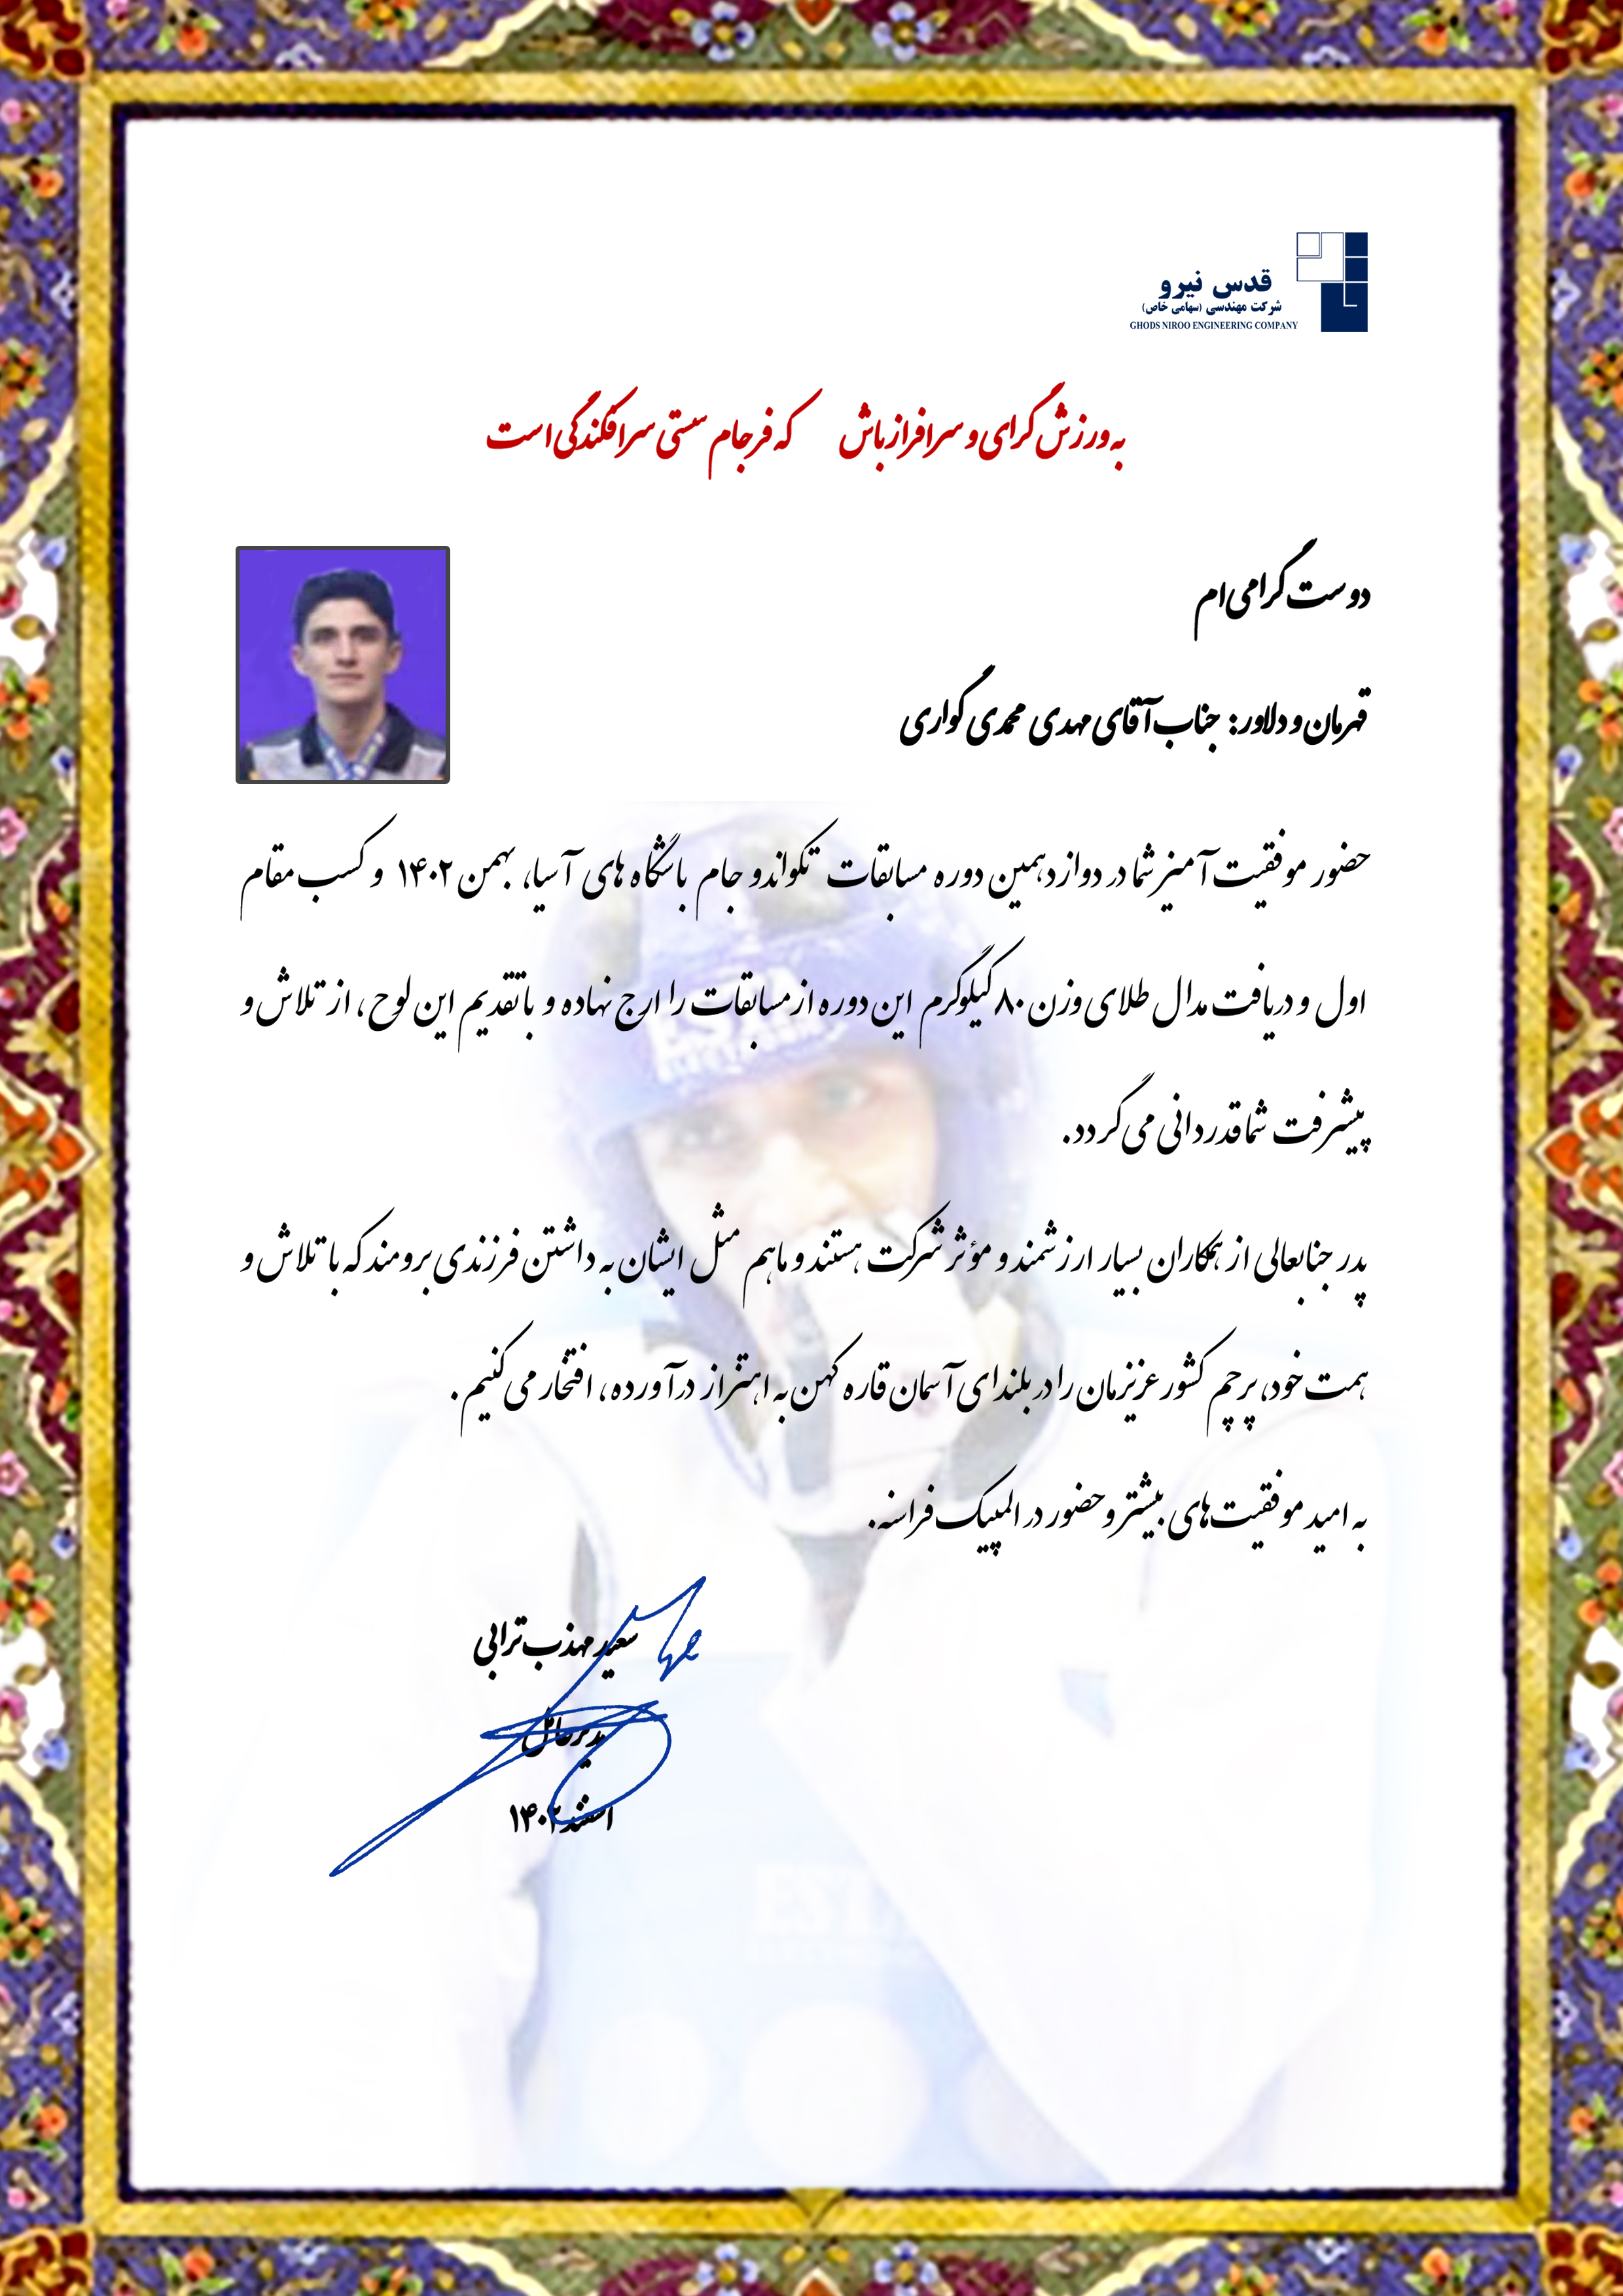 قدس نیرو
شرکت مهندسی (سهامی خاص)
GHODS NIROO ENGINEERING COMPANY
به ورزش گرای و سرافراز باش که فرجام سستی سرافکندگی است
دوست گرامی ام
قهرمان و دلاور: جناب آقای مهدی محمدی گواری
حضور موفقیت آمیز شما در دوازدهمین دوره مسابقات تکواندو جام باشگاه های آسیا، بهمن ۱۴۰۲ و کسب مقام
اول و دریافت مدال طلای وزن ۸۰ کیلوگرم این دوره از مسابقات را ارج نهاده و با تقدیم این لوح، از تلاش و
پیشرفت شما قدردانی می گردد.
پدر جنابعالی از همکاران بسیار ارزشمند و مؤثر شرکت هستند و ما هم مثل ایشان به داشتن فرزندی برومند که با تلاش و
همت خود، پرچم کشور عزیزمان را در بلندای آسمان قاره کهن به اهتزاز درآورده، افتخار می کنیم.
به امید موفقیت های بیشتر و حضور در المپیک فرانسه.
سعید مهذب ترابی
مدیرعامل
اسفند ۱۴۰۲